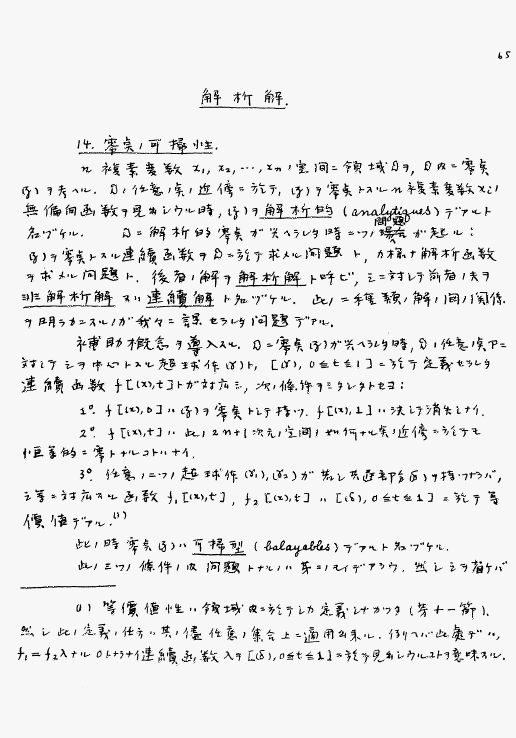 65
解析解.
14. 零点ノ可掃性.
n 複素変数 x₁, x₂, …, xₙ ノ空間ニ領域 D ヲ, D 内ニ零点
ヲ考ヘル. D ノ任意ノ点ノ近傍ニ於テ, ヲ零点トスル n 複素変数 xᵢ ノ
無偏向函数ヲ見出シウル時, ヲ解析的 (analytiques) デアルト
名ヅケル. D ニ解析的零点ガ与ヘラレタ時二ツノ問題ガ起ル:
ヲ零点トスル連続函数ヲ D ニ於テ求メル問題ト, カ様ナ解析函数
ヲ求メル問題ト. 後者ノ解ヲ解析解ト呼ビ, 之ニ対シテ前者ノ夫ヲ
非解析解又ハ連續解ト名ヅケル. 此ノ二種類ノ解ノ間ノ関係
ヲ明ラカニスルノガ我々ニ課セラレタ問題デアル.
補助概念ヲ導入スル. D ニ零点ガ与ヘラレタ時, D ノ任意ノ点 P ニ
対シテ之ヲ中心トスル超球体 (γ) ト, [(γ), 0≦t≦1] ニ於テ定義セラレタ
連續函数 f[(x), t] トガ対応シ, 次ノ條件ヲミタシタトセヨ:
1° f[(x), 0] ハ ヲ零点トシテ持ツ. f[(x), 1] ハ決シテ消失シナイ.
2° f[(x), t] ハ此ノ 2n+1 次元ノ空間ノ如何ナル点ノ近傍ニ於テモ
恒等的ニ零トナルコトハナイ.
3° 任意ノ二ツノ超球体 (γ₁), (γ₂) ガ共通部分 (δ) ヲ持ツナラバ,
之等ニ対応スル函数 f₁[(x), t], f₂[(x), t] ハ [(δ), 0≦t≦1] ニ於テ等
價値デアル.⁽¹⁾
此ノ時零点ハ可掃型 (balayables) デアルト名ヅケル.
此ノ三ツノ條件ノ内問題トナルノハ第二ノモノデアラウ. 然シ之ヲ省ケバ
(1) 等價値性ハ領域内ニ於テシカ定義シナカツタ (第十一節).
然シ此ノ定義ノ仕方ハ其ノ儘任意ノ集合上ニ適用出来ル. 例ヘバ此處デハ,
f₁ = f₂λ ナル 0 トナラナイ連續函数 λ ヲ [(δ), 0≦t≦1] ニ於テ見出シウルコトヲ意味スル.